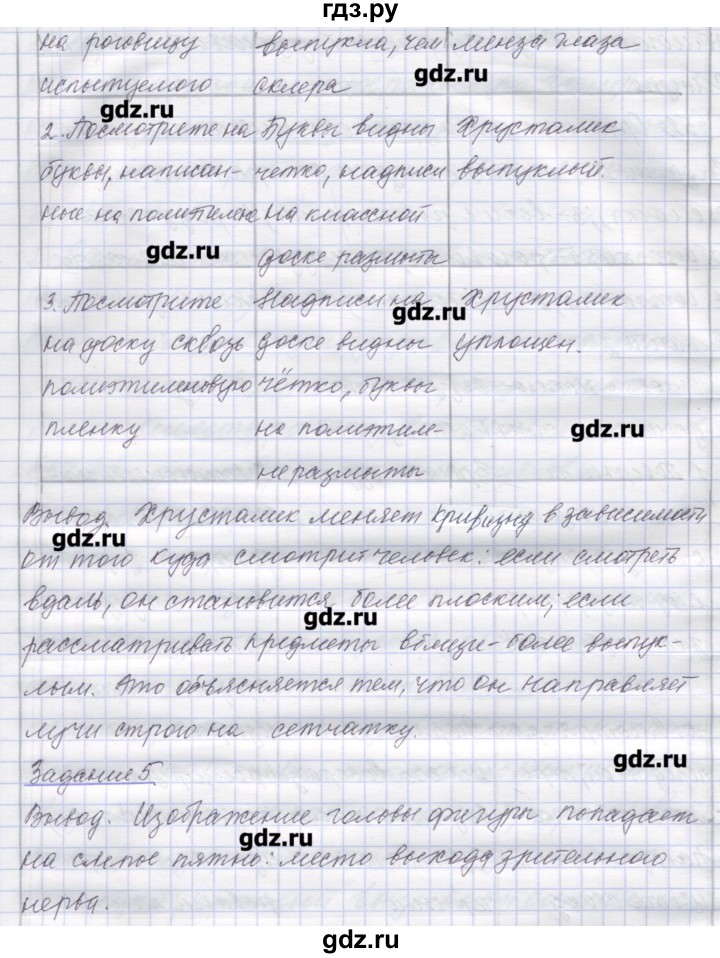 гдз.ру
на роговицу выпукла, чем линза глаза
испытуемого склера
gdz.ru
gdz.ru
2. Посмотрите на Буквы видны Хрусталик
буквы, написан- четко, надписи выпуклый.
ные на полиэтилене на классной
gdz.ru
доске размыты
3. Посмотрите Надписи на Хрусталик
gdz.ru
на доску сквозь доске видны уплощен.
полиэтиленовую чётко, буквы
пленку на полиэтиле-
gdz.ru
не размыты
Вывод. Хрусталик меняет кривизну в зависимости
gdz.ru
от того куда смотрит человек: если смотреть
вдаль, он становится более плоским; если
gdz.ru
рассматривать предметы вблизи - более выпук-
лым. Это объясняется тем, что он направляет
лучи строго на сетчатку.
gdz.ru
Задание 5
Вывод. Изображение головы фигуры попадает
gdz.ru
на слепое пятно: место выхода зрительного
нерва.
gdz.ru